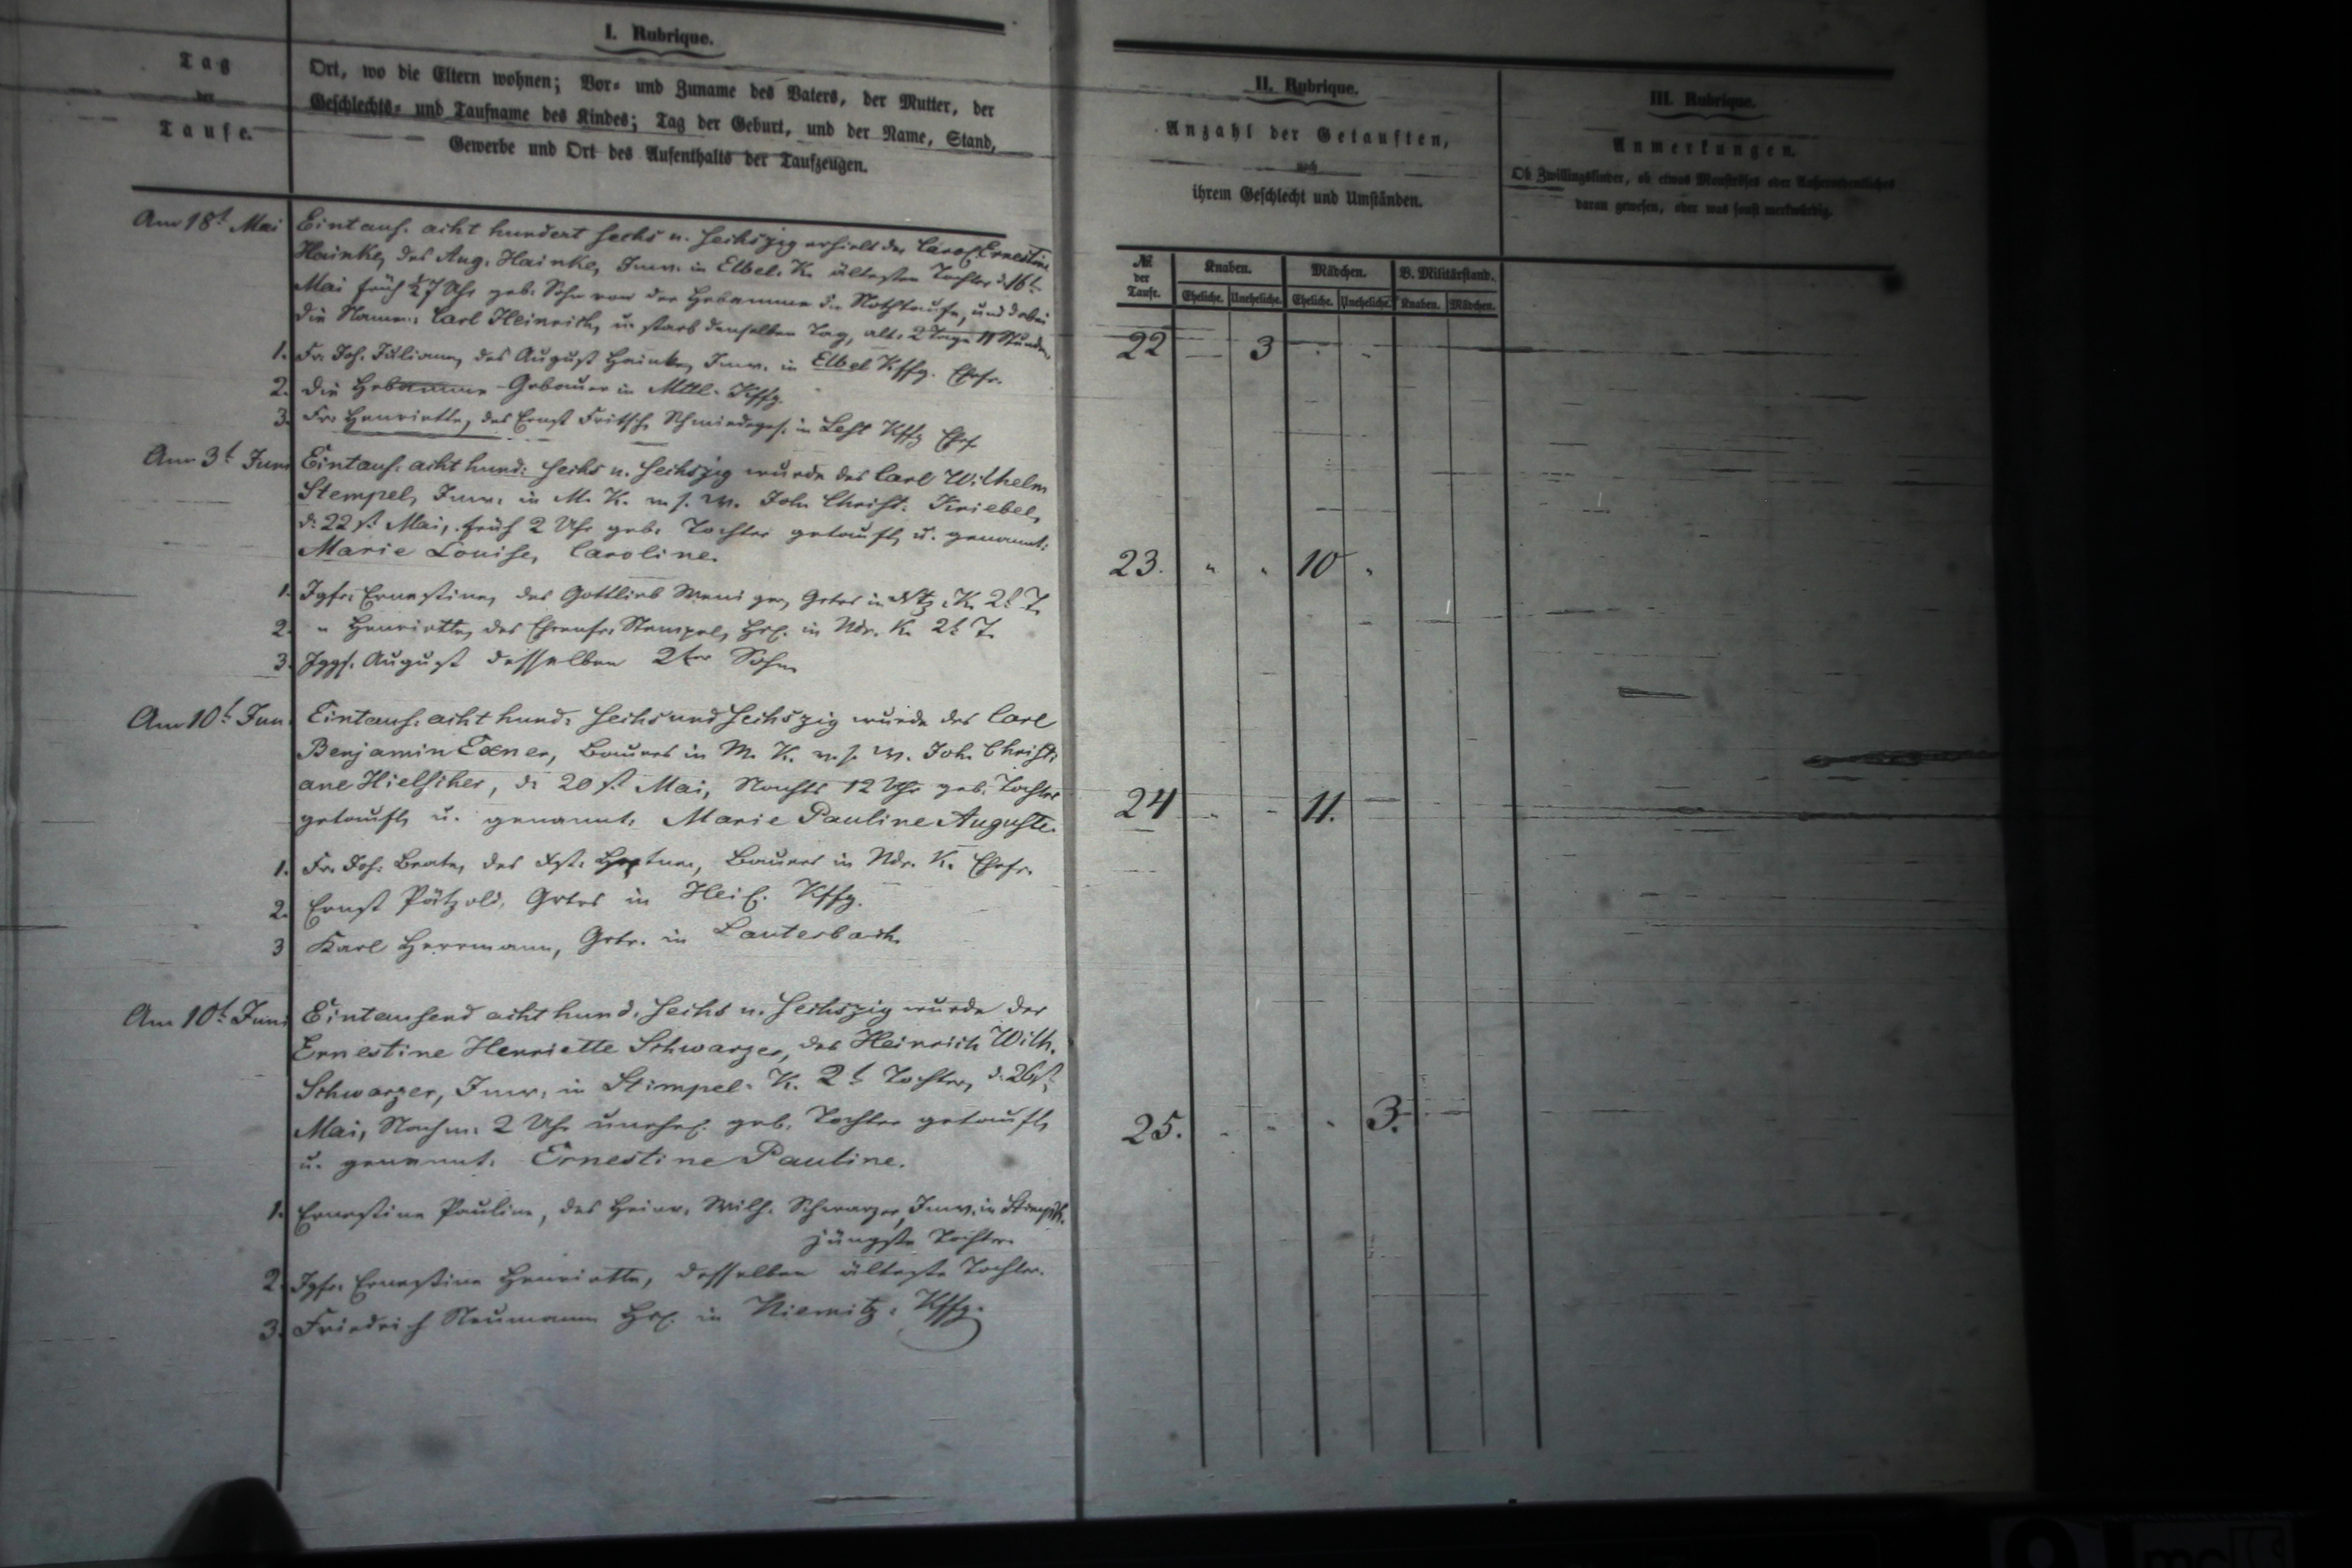 I. Rubrique.
Tag
der
Taufe.
Ort, wo die Eltern wohnen; Vor- und Zuname des Vaters, der Mutter, der
Geschlechts- und Taufname des Kindes; Tag der Geburt, und der Name, Stand,
Gewerbe und Ort des Aufenthalts der Taufzeugen.
II. Rubrique.
Anzahl der Getauften,
nach
ihrem Geschlecht und Umständen.
III. Rubrique.
Anmerkungen.
Ob Zwillingskinder, ob etwas Monströses oder Außerordentliches
daran gewesen, oder was sonst merkwürdig.
№ der Taufe.
Knaben. Mädchen. B. Militärstand.
Eheliche. Uneheliche. Eheliche. Uneheliche. Knaben. Mädchen.
Am 18t Mai Eintaus. acht hundert sechs u. sechszig erhielt der Carol. Ernestine
Hainke, des Aug. Hainke, Inw. in Elbel. K. ältesten Tochter d. 16t
Mai früh ½7 Uhr geb. Sohn von der Hebamme die Nothtaufe, und dabei
die Namen: Carl Heinrich, u. starb denselben Tag, alt: 2 Tage 11 Stunden.
1. Fr. Joh. Juliane, des August Hainke, Inw. in Elbel Kffg. Ehefr.
2. die Hebamme Gebauer in Mttl. Kffg.
3. Fr. Henriette, des Ernst Fritsch, Schmiedeges. in Lest Kffg Ehefr.
22 3
Am 3t Juni Eintaus. acht hund: sechs u. sechszig wurde des Carl Wilhelm
Stempel, Inw. in M. K. u. s. W. Joh. Christ. Kriebel,
d. 22st Mai, früh 2 Uhr geb. Tochter getauft, u. genannt:
Marie Louise, Caroline.
1. Igfr. Ernestine, des Gottlieb Grtrs in K. 2t T.
2. " Henriette, des Ehrenfr. Stempel, Hsl. in Ndr. K. 2t T.
3. Jggs. August desselben 2ter Sohn
23. " " 10 "
Am 10t Jun. Eintaus. acht hund. sechs und sechszig wurde des Carl
Benjamin Exner, Bauers in M. K. u. s. W. Joh. Christi
ane Hielscher, d. 20st Mai, Nachts 12 Uhr geb. Tochter
getauft, u. genannt: Marie Pauline Auguste.
1. Fr. Joh. Beate, des Bauers in Ndr. K. Ehefr.
2. Ernst Pätzold, Grtrs in Heil. Kffg.
3 Karl Herrmann, Grtr. in Lauterbach.
24 11.
Am 10t Juni Eintausend acht hund. sechs u. sechszig wurde der
Ernestine Henriette Schwarzer, des Heinrich Wilh.
Schwarzer, Inw. in Stimpel. K. 2t Tochter, d. 26st
Mai, Nachm. 2 Uhr unehel. geb. Tochter getauft,
u. genannt: Ernestine Pauline.
1. Ernestine Pauline, des Heinr. Wilh. Schwarzer, Inw. in
jüngste Tochter.
2. Igfr. Ernestine Henriette, desselben älteste Tochter.
3. Friedrich Neumann Hsl. in Niemitz. Kffg.
25. " " " 3.